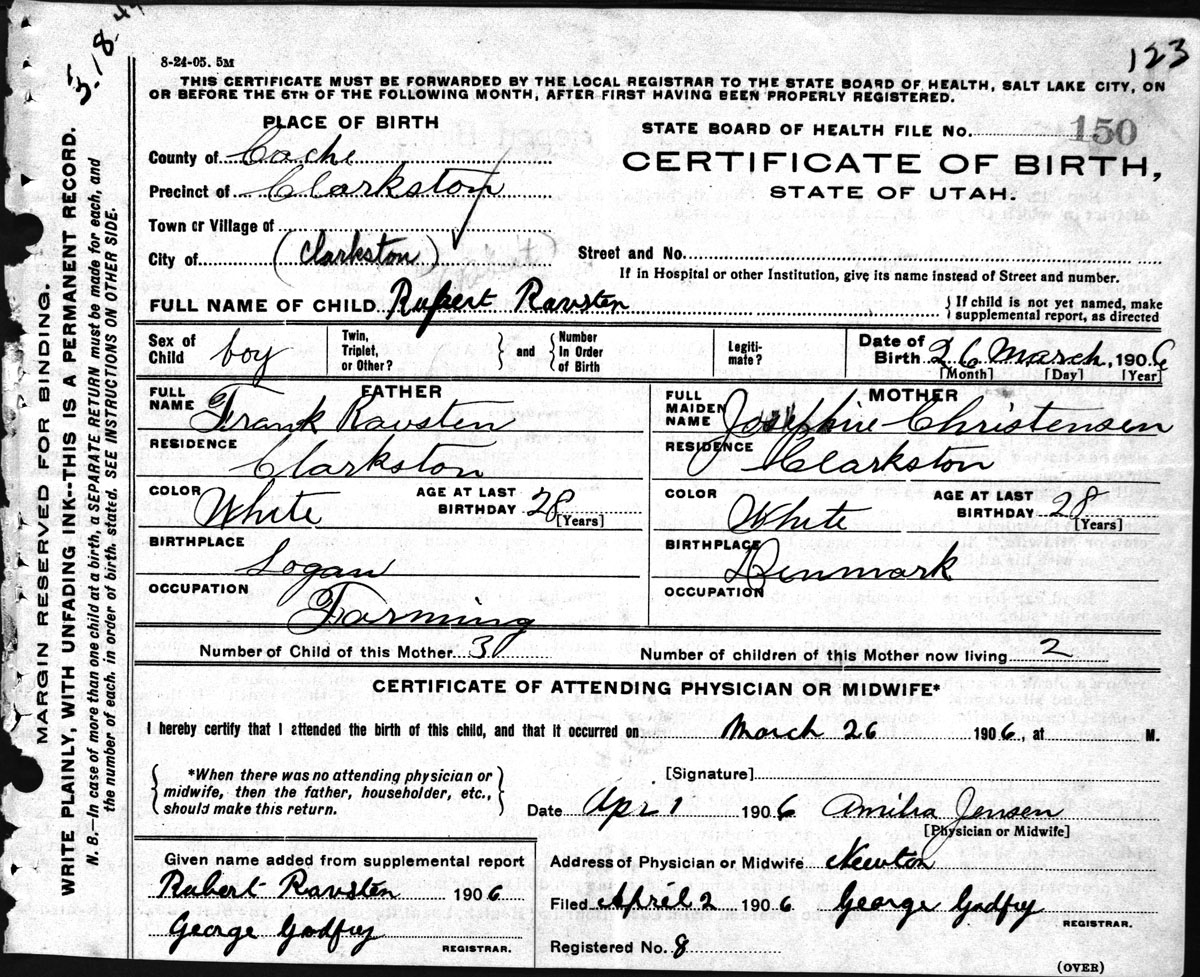 5-18-44
123
8-24-05. 5M
THIS CERTIFICATE MUST BE FORWARDED BY THE LOCAL REGISTRAR TO THE STATE BOARD OF HEALTH, SALT LAKE CITY, ON
OR BEFORE THE 5TH OF THE FOLLOWING MONTH, AFTER FIRST HAVING BEEN PROPERLY REGISTERED.
PLACE OF BIRTH
STATE BOARD OF HEALTH FILE No. 150
County of Cache
CERTIFICATE OF BIRTH,
Precinct of Clarkston
STATE OF UTAH.
Town or Village of
City of (Clarkston)
Street and No.
If in Hospital or other Institution, give its name instead of Street and number.
FULL NAME OF CHILD Rupert Ravsten
{If child is not yet named, make
supplemental report, as directed
Sex of Child boy
Twin, Triplet, or Other? } and { Number In Order of Birth
Legiti-mate?
Date of Birth 26 March, 1906
[Month] [Day] [Year]
FATHER
FULL NAME Frank Ravsten
RESIDENCE Clarkston
COLOR White AGE AT LAST BIRTHDAY 28 [Years]
BIRTHPLACE Logan
OCCUPATION Farming
MOTHER
FULL MAIDEN NAME Josephine Christensen
RESIDENCE Clarkston
COLOR White AGE AT LAST BIRTHDAY 28 [Years]
BIRTHPLACE Denmark
OCCUPATION
Number of Child of this Mother 3
Number of children of this Mother now living 2
CERTIFICATE OF ATTENDING PHYSICIAN OR MIDWIFE*
I hereby certify that I attended the birth of this child, and that it occurred on March 26 1906, at M.
{ *When there was no attending physician or
midwife, then the father, householder, etc.,
should make this return. }
[Signature]
Date Apr 1 1906 Amilia Jensen
[Physician or Midwife]
Given name added from supplemental report
Rubert Ravsten 1906
George Godfrey
REGISTRAR.
Address of Physician or Midwife Newton
Filed April 2 1906 George Godfrey
REGISTRAR.
Registered No. 8
(OVER)
MARGIN RESERVED FOR BINDING.
WRITE PLAINLY, WITH UNFADING INK--THIS IS A PERMANENT RECORD.
N. B.—In case of more than one child at a birth, a SEPARATE RETURN must be made for each, and
the number of each, in order of birth, stated. SEE INSTRUCTIONS ON OTHER SIDE.